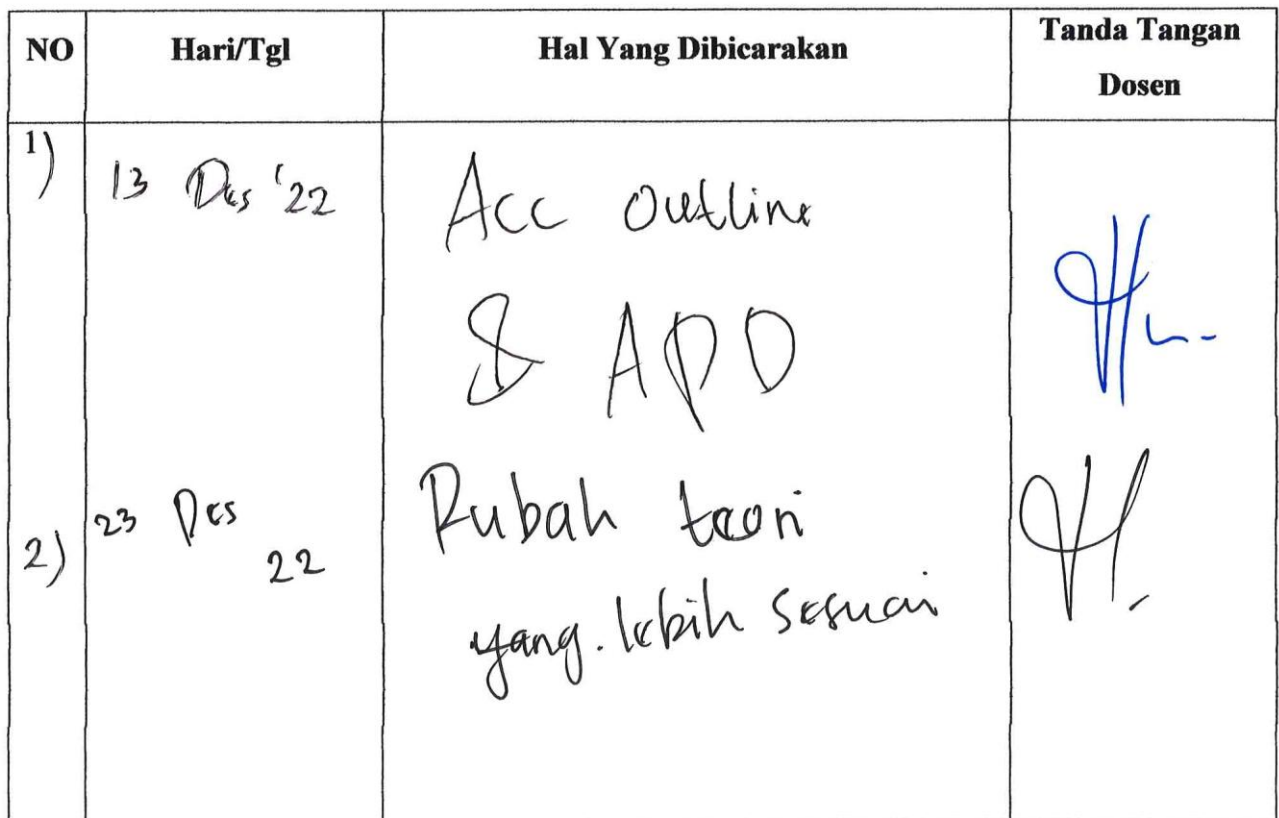 NO Hari/Tgl Hal Yang Dibicarakan Tanda Tangan Dosen
1) 13 Des '22 Acc outline
& APD
2) 23 Des 22 Rubah teori
yang lebih sesuai